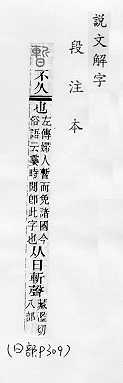 說文解字
段注本
暫 不久也 左傳婦人暫而免諸國今
俗語云霎時閒卽此字也 从日斬聲 藏濫切
八部
(日部p309)